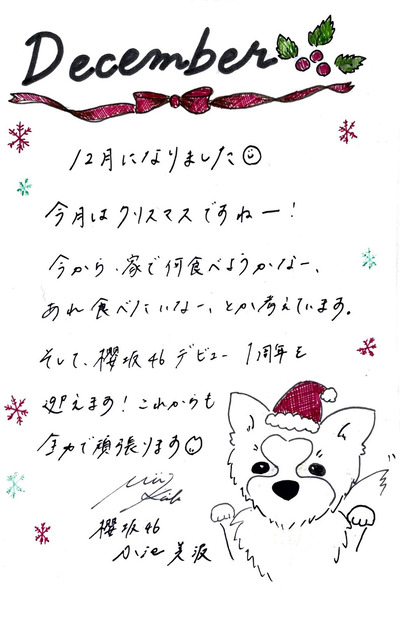 December
12月になりました
今月はクリスマスですねー!
今から、家で何食べようかなー、
あれ食べたいなー、とか考えています。
そして、櫻坂46デビュー1周年を
迎えます!これからも
全力で頑張ります
櫻坂46
美波